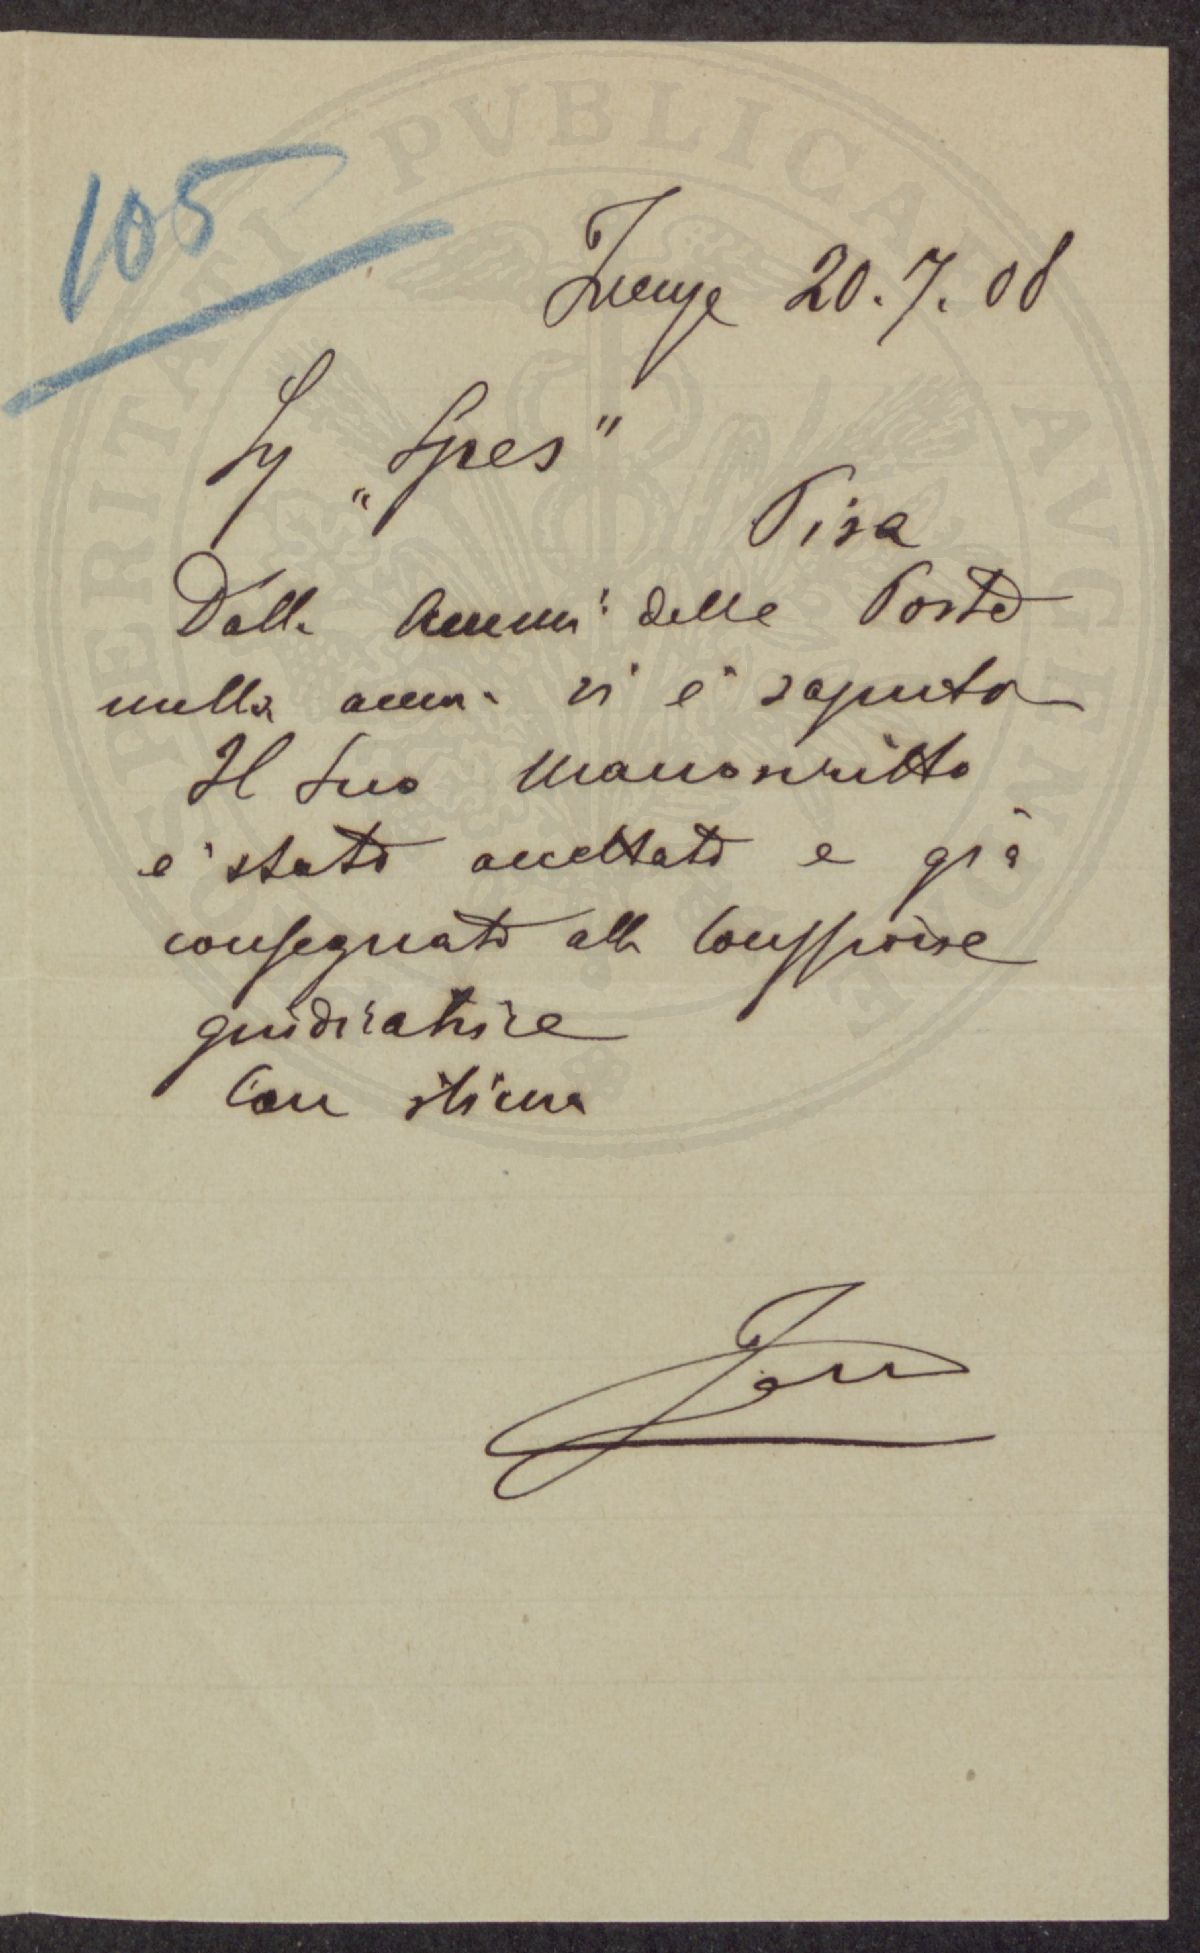 105
Firenze 20.7.08
Sig „Spes"
Pisa
Dalla Ammi: delle Poste
nulla ancora si è saputo
Il suo manoscritto
è stato accettato e già
consegnato alla Commissione
giudicatrice
Con stima
PROSPERITATI PVBLICAE AVGENDAE